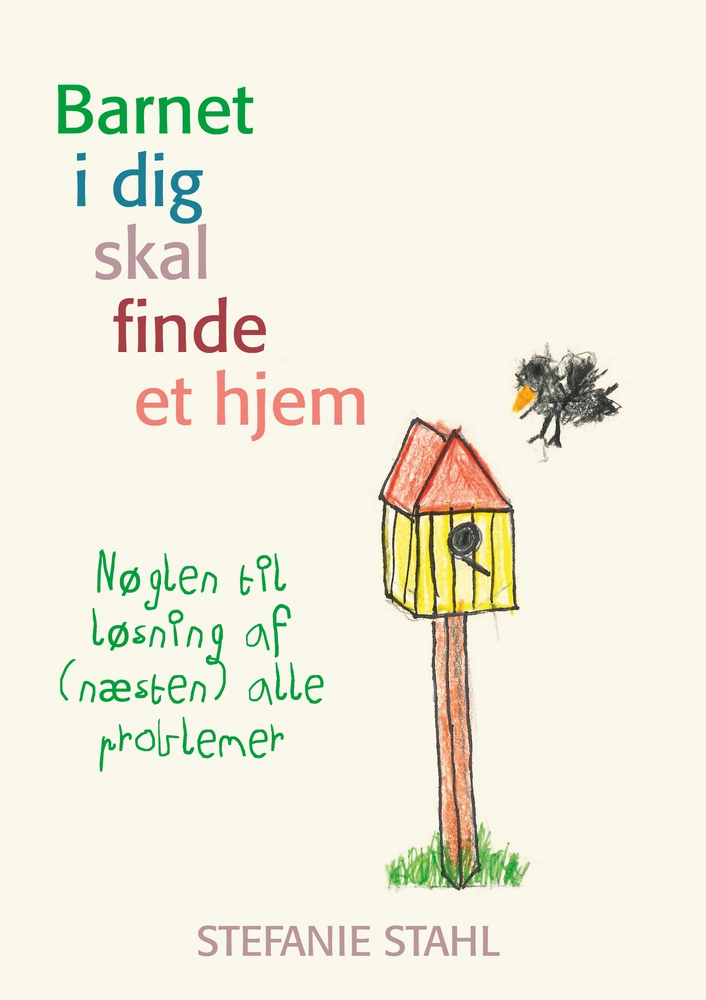 Barnet
i dig
skal
finde
et hjem
Nøglen til
løsning af
(næsten) alle
problemer
STEFANIE STAHL